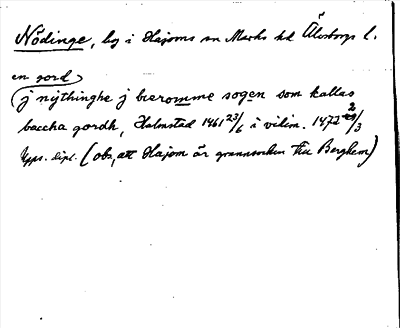 Nödinge, by i Hajoms sn Marks hd Älvsborgs l.
en gord
j nythinghe j bieromme sogen som kallas
baccha gordh, Halmstad 1461 23/6 i vidim. 1472 2/3
Upps. dipl. (obs, att Hajom är grannsocken till Berghem)